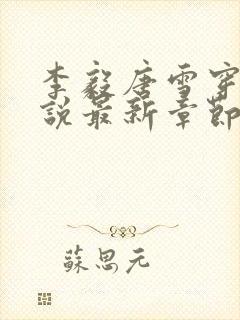 李毅唐雪穿
說最新章節
蘇思元